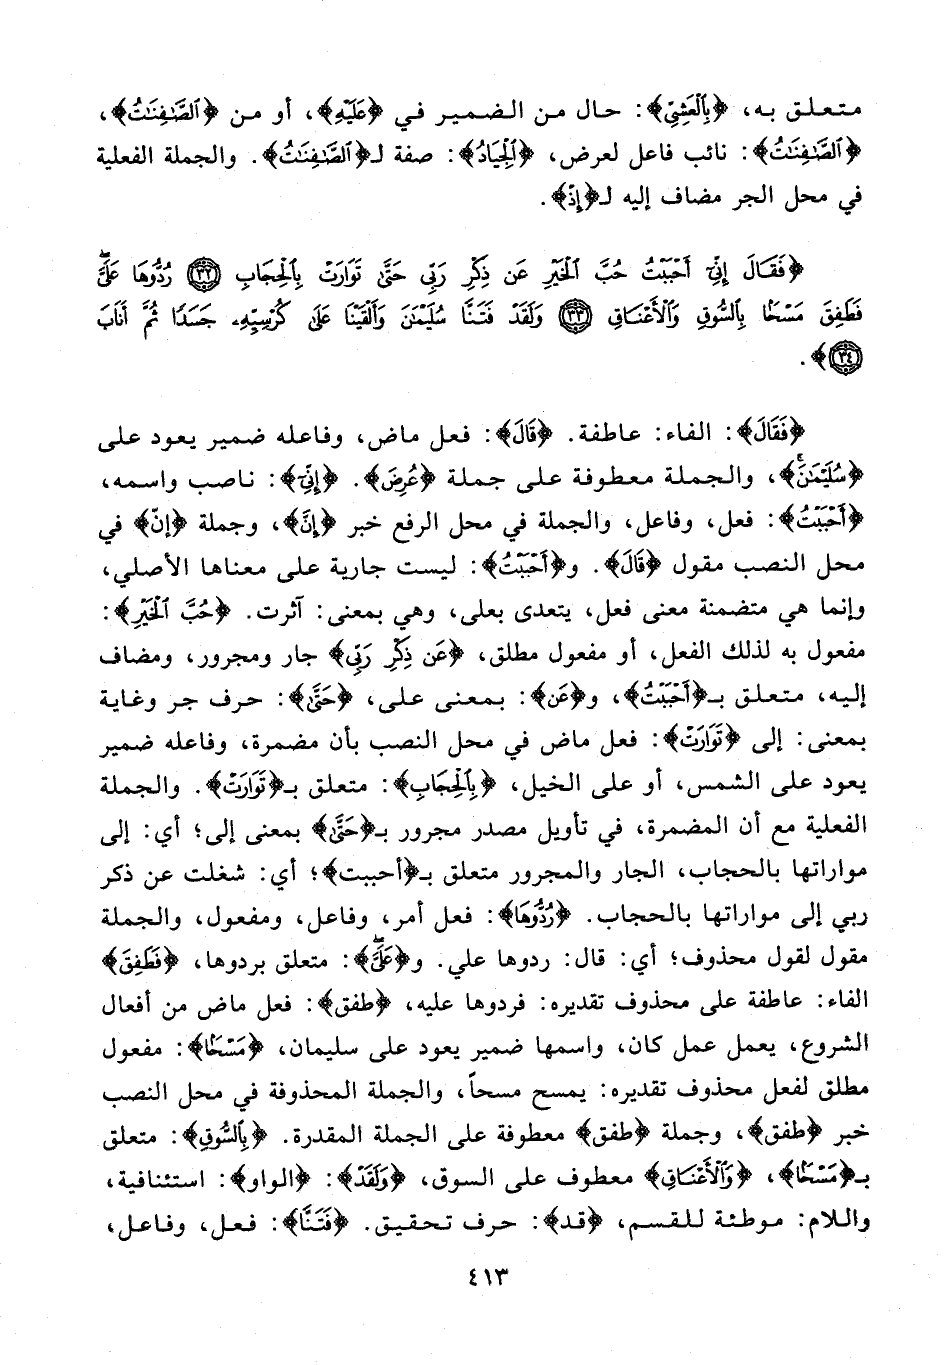 متعلق به، ﴿بِٱلْعَشِيِّ﴾: حال من الضمير في ﴿عَلَيْهِ﴾، أو من ﴿ٱلصَّٰفِنَٰتُ﴾،
﴿ٱلصَّٰفِنَٰتُ﴾: نائب فاعل لعرض، ﴿ٱلْجِيَادُ﴾: صفة لـ﴿ٱلصَّٰفِنَٰتُ﴾. والجملة الفعلية
في محل الجر مضاف إليه لـ﴿إِذْ﴾.
﴿فَقَالَ إِنِّيٓ أَحْبَبْتُ حُبَّ ٱلْخَيْرِ عَن ذِكْرِ رَبِّي حَتَّىٰ تَوَارَتْ بِٱلْحِجَابِ ٣٢ رُدُّوهَا عَلَيَّۖ
فَطَفِقَ مَسْحًۢا بِٱلسُّوقِ وَٱلْأَعْنَاقِ ٣٣ وَلَقَدْ فَتَنَّا سُلَيْمَٰنَ وَأَلْقَيْنَا عَلَىٰ كُرْسِيِّهِۦ جَسَدًا ثُمَّ أَنَابَ
٣٤﴾.
﴿فَقَالَ﴾: الفاء: عاطفة. ﴿قَالَ﴾: فعل ماض، وفاعله ضمير يعود على
﴿سُلَيْمَٰنَۚ﴾، والجملة معطوفة على جملة ﴿عُرِضَ﴾. ﴿إِنِّيٓ﴾: ناصب واسمه،
﴿أَحْبَبْتُ﴾: فعل، وفاعل، والجملة في محل الرفع خبر ﴿إِنَّ﴾، وجملة ﴿إنّ﴾ في
محل النصب مقول ﴿قَالَ﴾. و﴿أَحْبَبْتُ﴾: ليست جارية على معناها الأصلي،
وإنما هي متضمنة معنى فعل، يتعدى بعلى، وهي بمعنى: آثرت. ﴿حُبَّ ٱلْخَيْرِ﴾:
مفعول به لذلك الفعل، أو مفعول مطلق، ﴿عَن ذِكْرِ رَبِّي﴾ جار ومجرور، ومضاف
إليه، متعلق بـ﴿أَحْبَبْتُ﴾، و﴿عَن﴾: بمعنى على، ﴿حَتَّىٰ﴾: حرف جر وغاية
بمعنى: إلى ﴿تَوَارَتْ﴾: فعل ماض في محل النصب بأن مضمرة، وفاعله ضمير
يعود على الشمس، أو على الخيل، ﴿بِٱلْحِجَابِ﴾: متعلق بـ﴿تَوَارَتْ﴾. والجملة
الفعلية مع أن المضمرة، في تأويل مصدر مجرور بـ﴿حَتَّىٰ﴾ بمعنى إلى؛ أي: إلى
مواراتها بالحجاب، الجار والمجرور متعلق بـ﴿أحببت﴾؛ أي: شغلت عن ذكر
ربي إلى مواراتها بالحجاب. ﴿رُدُّوهَا﴾: فعل أمر، وفاعل، ومفعول، والجملة
مقول لقول محذوف؛ أي: قال: ردوها علي. و﴿عَلَيَّۖ﴾: متعلق بردوها، ﴿فَطَفِقَ﴾
الفاء: عاطفة على محذوف تقديره: فردوها عليه، ﴿طفق﴾: فعل ماض من أفعال
الشروع، يعمل عمل كان، واسمها ضمير يعود على سليمان، ﴿مَسْحًۢا﴾: مفعول
مطلق لفعل محذوف تقديره: يمسح مسحاً، والجملة المحذوفة في محل النصب
خبر ﴿طفق﴾، وجملة ﴿طفق﴾ معطوفة على الجملة المقدرة. ﴿بِٱلسُّوقِ﴾: متعلق
بـ﴿مَسْحًۢا﴾، ﴿وَٱلْأَعْنَاقِ﴾ معطوف على السوق، ﴿وَلَقَدْ﴾: ﴿الواو﴾: استئنافية،
واللام: موطئة للقسم، ﴿قد﴾: حرف تحقيق. ﴿فَتَنَّا﴾: فعل، وفاعل،
٤١٣